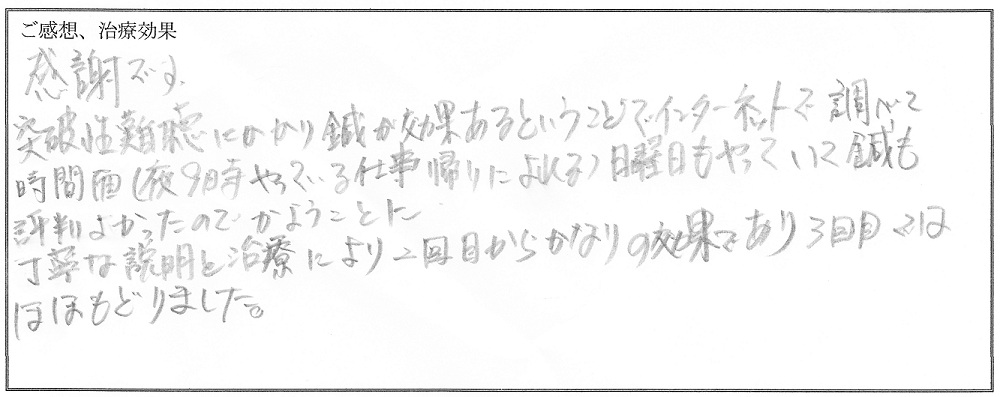 ご感想、治療効果
感謝です。
突破性難聴にかかり鍼が効果あるということでインターネットで調べて
時間面(夜9時までやっている仕事帰りによれる)日曜日もやっていて鍼も
評判よかったのでかようことに
丁寧な説明と治療により2回目からかなりの効果であり3回目では
ほほもどりました。